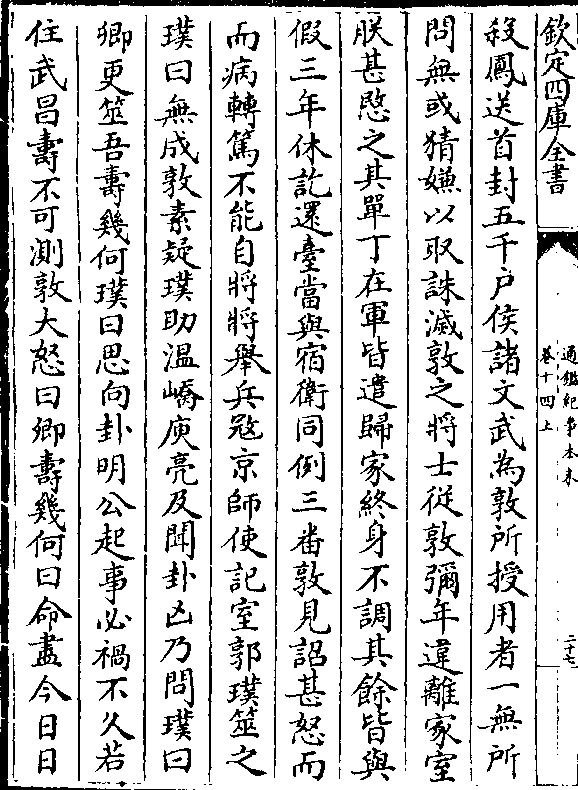 欽定四庫全書
通鑑紀事本末
卷十四上
二十七
殺鳳送首封五千戶侯諸文武為敦所授用者一無所
問無或猜嫌以取誅滅敦之將士從敦彌年違離家室
朕甚愍之其單丁在軍皆遣歸家終身不調其餘皆與
假三年休訖還臺當與宿衛同例三番敦見詔甚怒而
而病轉篤不能自將將舉兵冦京師使記室郭璞筮之
璞曰無成敦素疑璞助溫嶠庾亮及聞卦凶乃問璞曰
卿更筮吾壽幾何璞曰思向卦明公起事必禍不久若
住武昌壽不可測敦大怒曰卿壽幾何曰命盡今日日